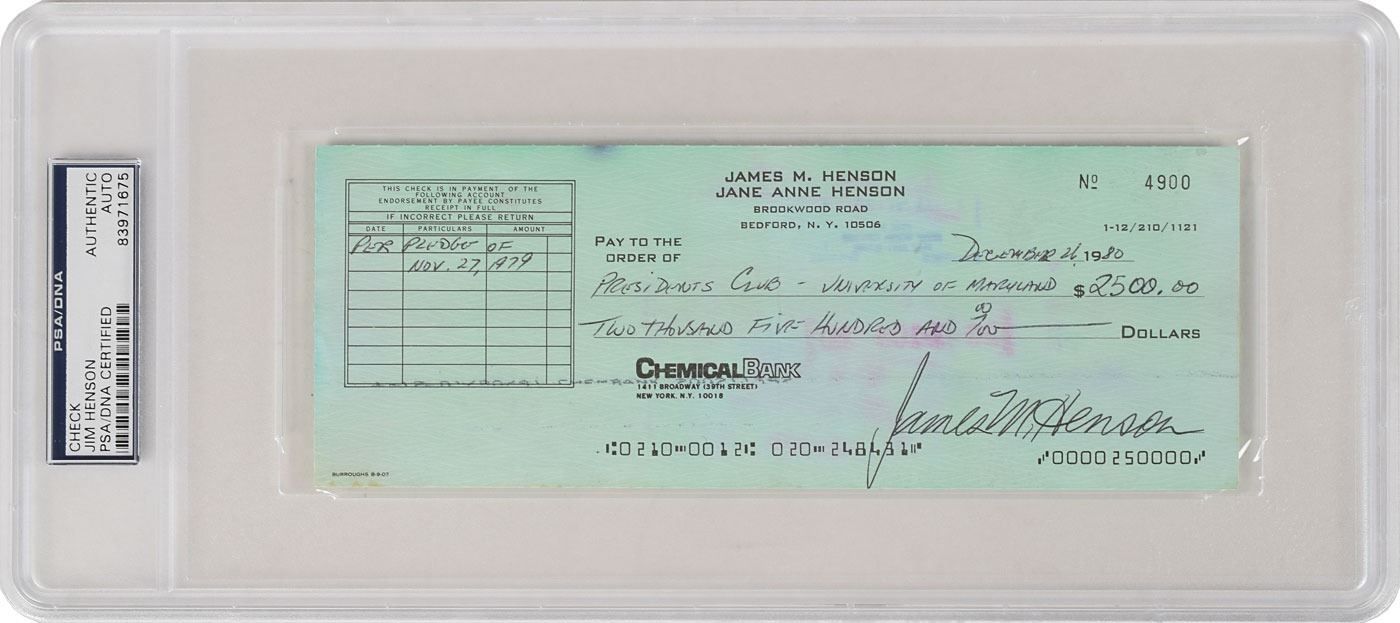 PSA/DNA
CHECK
JIM HENSON
PSA/DNA CERTIFIED
AUTHENTIC
AUTO
83971675
THIS CHECK IS IN PAYMENT OF THE
FOLLOWING ACCOUNT
ENDORSEMENT BY PAYEE CONSTITUTES
RECEIPT IN FULL
IF INCORRECT PLEASE RETURN
DATE PARTICULARS AMOUNT
PER PLEDGE OF
NOV. 27, 1979
JAMES M. HENSON
JANE ANNE HENSON
BROOKWOOD ROAD
BEDFORD, N. Y. 10506
Nº 4900
1-12/210/1121
DECEMBER 1980
PAY TO THE
ORDER OF
PRESIDENTS CLUB - UNIVERSITY OF MARYLAND $2500.00
TWO THOUSAND FIVE HUNDRED AND 00/100 DOLLARS
CHEMICAL BANK
1411 BROADWAY (39TH STREET)
NEW YORK, N.Y. 10018
James M. Henson
⑆0210⑉0012⑆ 020⑉248431⑈ ⑈0000250000⑈
BURROUGHS 8-9-07